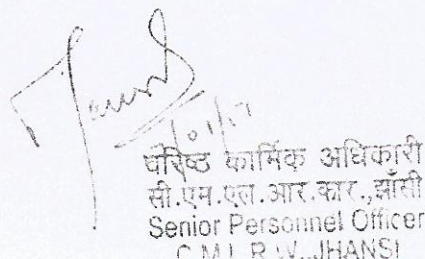 /01/17
वरिष्ठ कार्मिक अधिकारी
सी.एम.एल.आर.कार.,झाँसी
Senior Personnel Officer
C.M.L.R.W., JHANSI